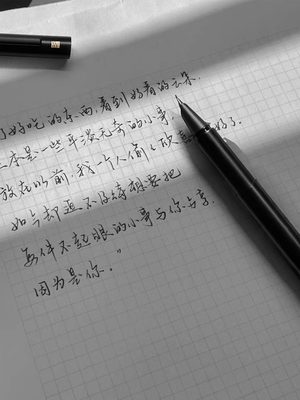 好吃的东西,看到好看的云朵,
本是一些平淡无奇的小事,
放在以前,我一个人偷々欣喜好了.
如今却迫不及待想要把
每件不起眼的小事与你分享,
因为是你。”